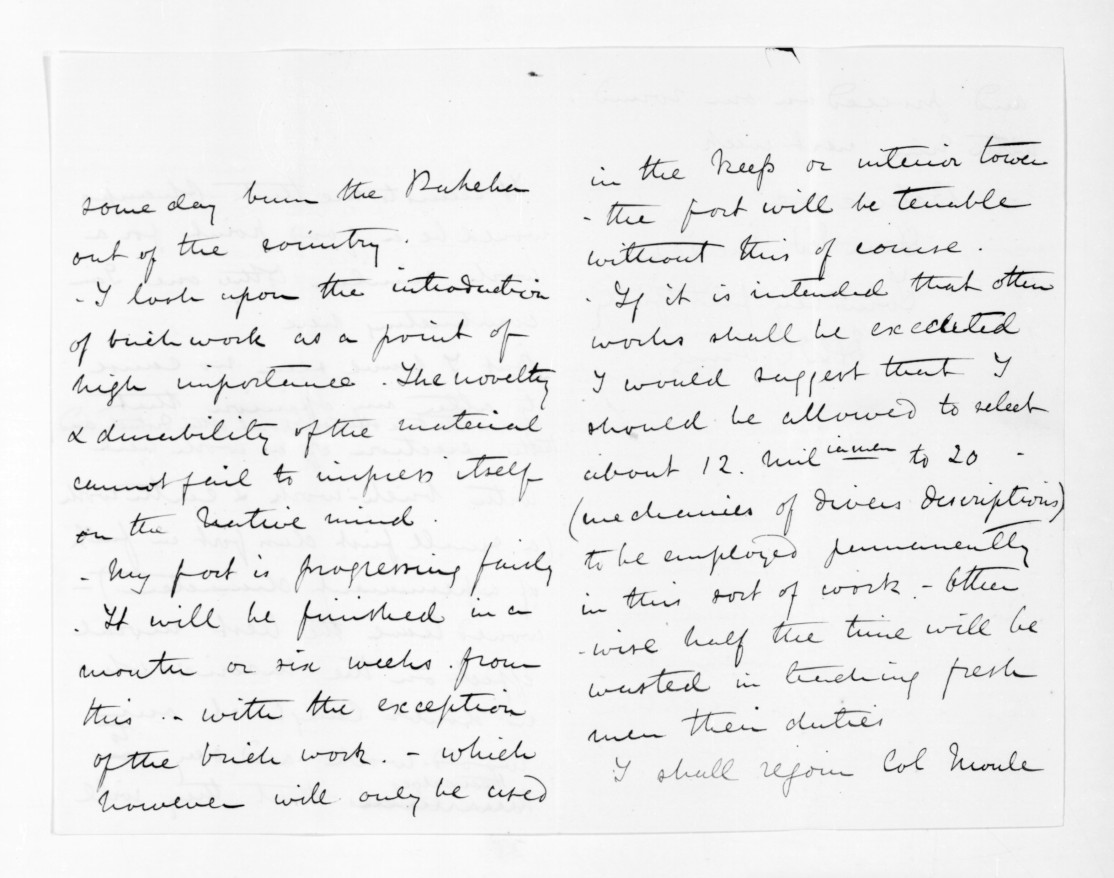 some day burn the Pakeha
out of the country.
- I look upon the introduction
of brick work as a point of
high importance. The novelty
& durability of the material
cannot fail to impress itself
on the Native mind.
- My fort is progressing fairly
. It will be finished in a
month or six weeks from
this. - with the exception
of the brick work. - which
however will only be used
in the Keep or interior tower
- the fort will be tenable
without this of course.
- If it is intended that other
works shall be executed
I would suggest that I
should be allowed to select
about 12. Militiamen to 20 -
(mechanics of divers descriptions)
to be employed permanently
in this sort of work. - Other
-wise half the time will be
wasted in teaching fresh
men their duties
I shall rejoin Col Moule